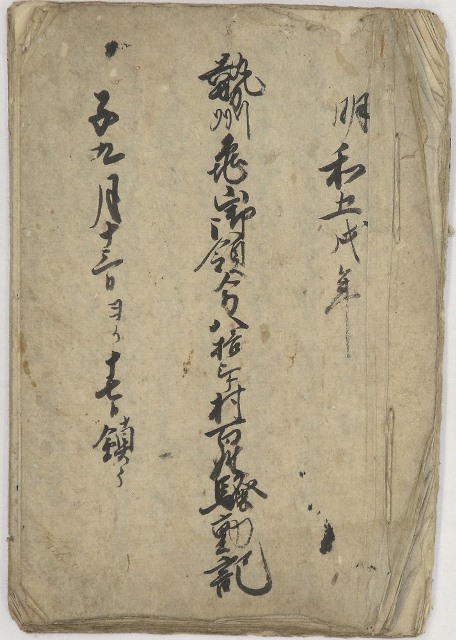 明和五戊年
勢州亀山御領分八拾三ヶ村百姓騒動記
子九月十三日ヨリ十七日鎮ル